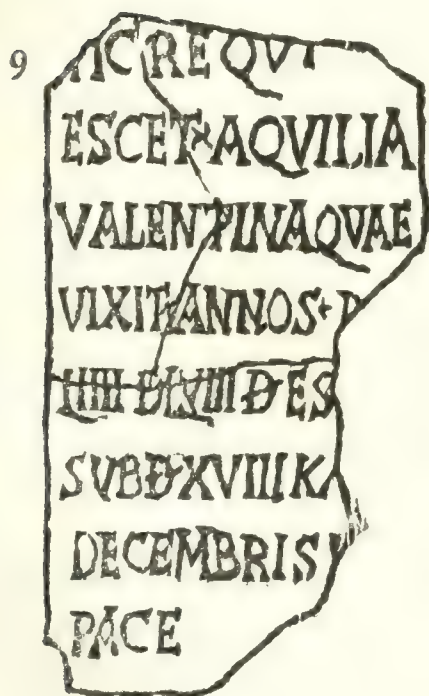 9
HIC REQVI
ESCET AQVILIA
VALENTINA QVAE
VIXIT ANNOS P
IIIII D LVIII D ES
SVB D XVIIII K
DECEMBRIS
PACE